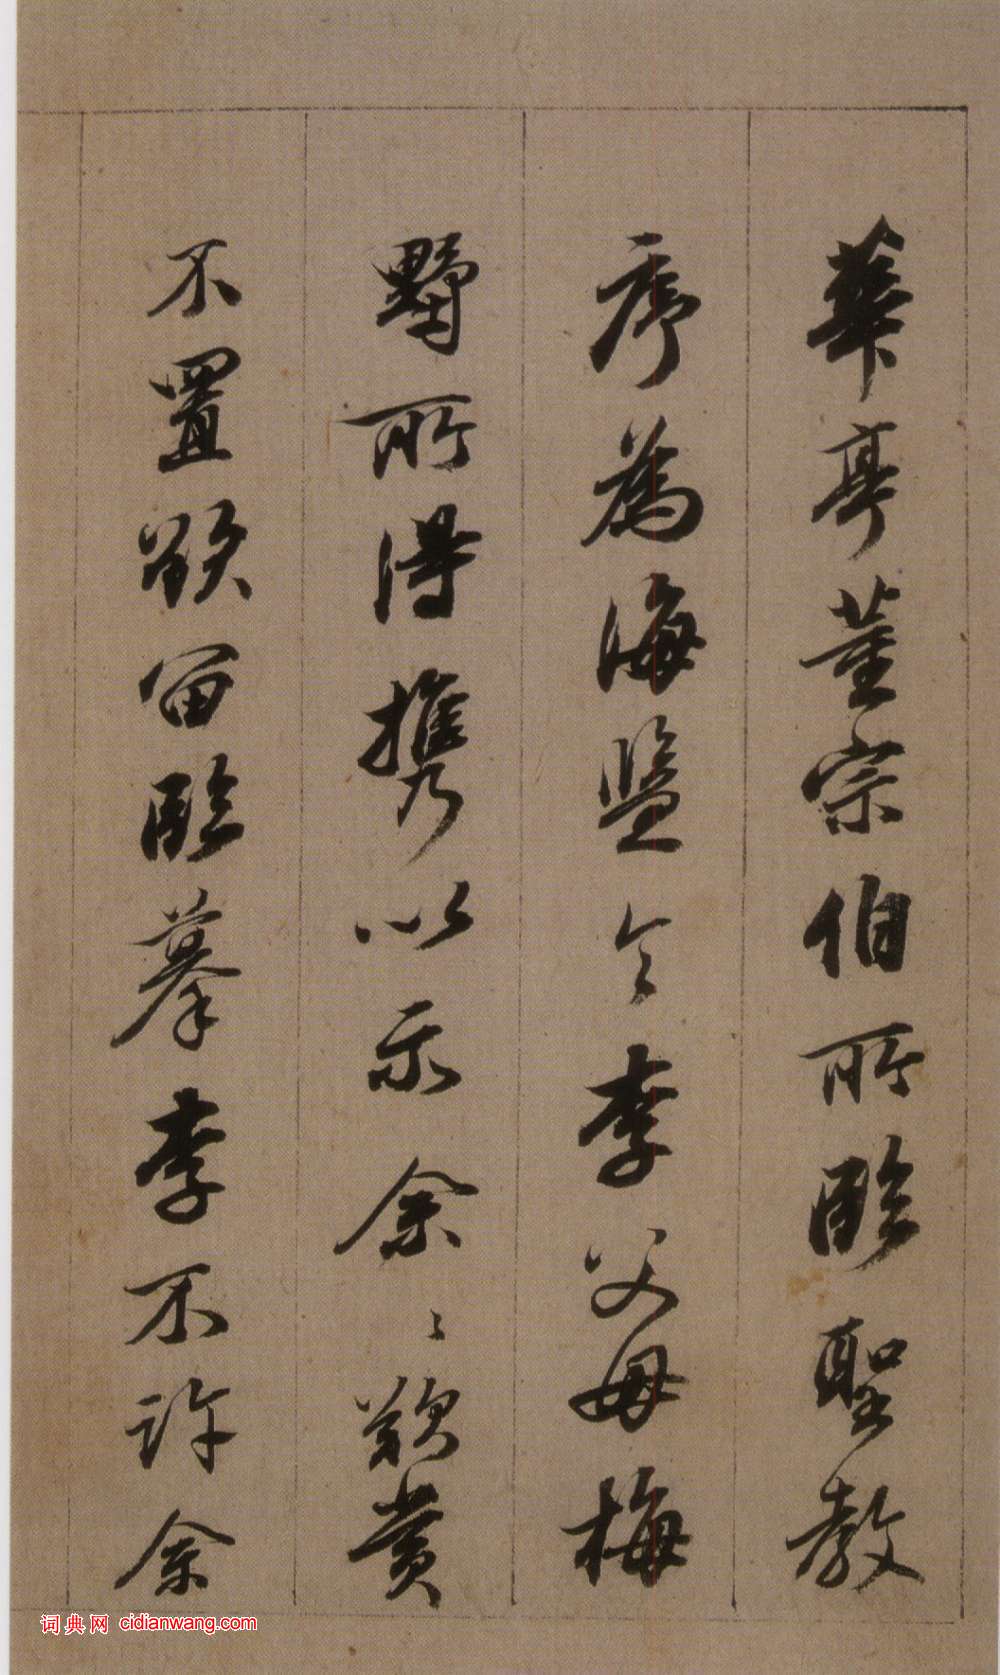 華亭董宗伯所臨聖教
序為海鹽令李父母梅
墅所得攜以示余〻歎賞
不置欲留臨摹李不許余
词典网 cidianwang.com